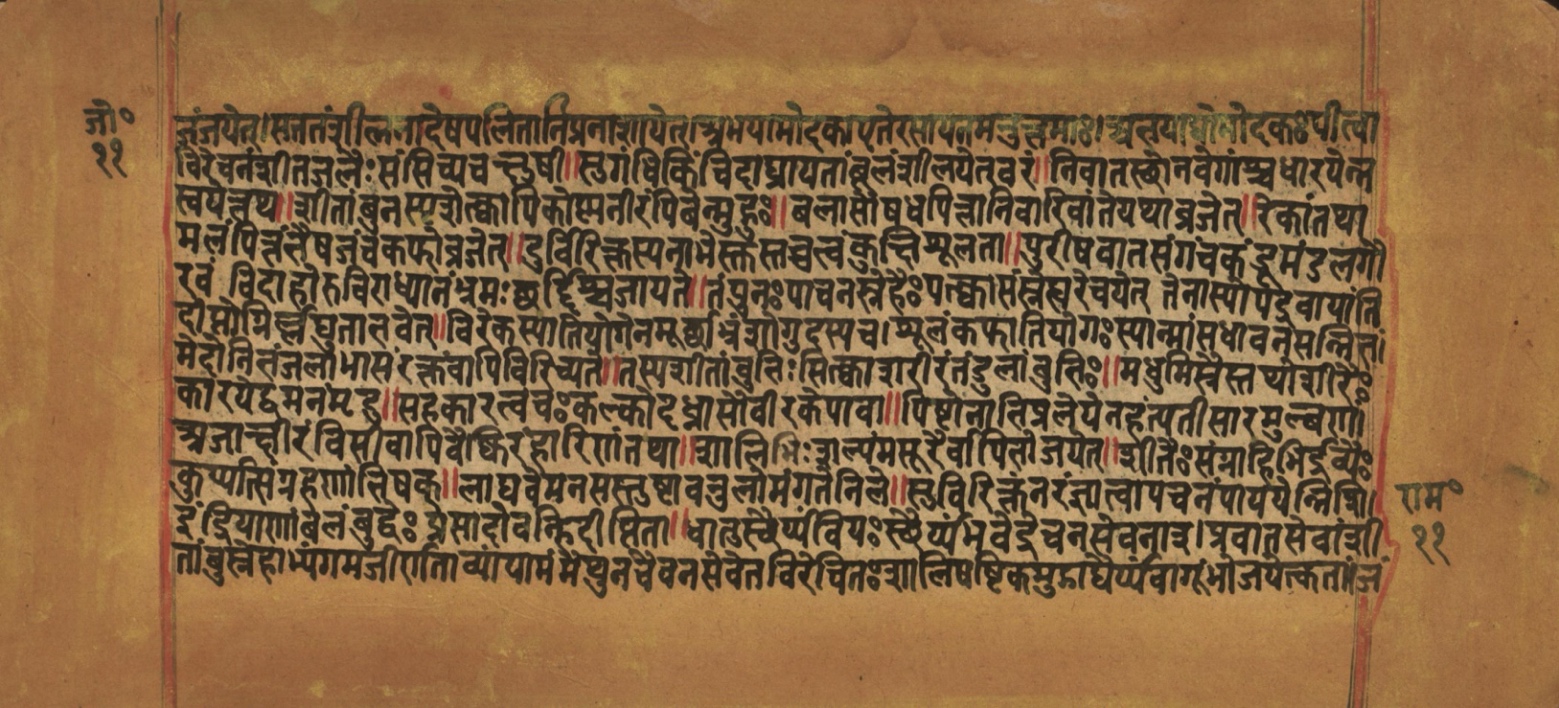 जो०
११
जंजयेत्। सततंशीलनादेषपलितानिप्रनाशयेत्। अभयामोदकाएतेरसायनमनुत्तमाः। पीत्वा
विरेचनंशीतजलैः संसिच्यचक्षुषी॥ सुगंधिकिंचिदाघ्रायतांबूलंशीलयेतवरं॥ निवातस्थोनवेगांश्चधारयेन्न
स्वपेन्नच॥ शीतांबुनस्पृशेत्क्वापिकोष्मनीरंपिबेन्मुहुः॥ बलासौषधपित्तानिवारिवांतेयथाव्रजेत्॥ रेकांतथा
मलंपित्तंभैषजंचकफोव्रजेत्॥ दुर्विरिक्तस्यनाभेस्तुस्तब्धत्वंकुक्षिशूलता॥ पुरीषवातसंगंचकंडूमंडलगौ
रवं विदाहोरुचिराध्मानंभ्रमः छर्द्दिश्चजायते॥ तंपुनः पाचनस्नेहैः पक्त्वासंस्नेह्यरेचयेत् तेनास्योपद्रवायांति
दीप्तोग्निर्लघुतालवेत्॥ विरेकस्यातियोगेनमूर्छाभ्रंशोगुदस्यच। शूलंकफातियोगः स्यान्मांसधावनसन्निभं।
मेदोनिभंजलोभासंरक्तंवापिविरिच्यते॥ तस्यशीतांबुभिः सिक्त्वाशरीरंतंडुलांबुभिः॥ मधुमिश्रैस्तथाशीतैः
कारयेद्वमनंमृदु॥ सहकारत्वचः कल्कोदध्नासौवीरकेणवा॥ पिष्टोनाभिप्रलेपेनहंत्यतीसारमुल्बणं।
अजाक्षीरंपिबेद्वापिवैष्किरंहारिणंतथा॥ शालिभिः स्वल्पंमसूरैर्वापिभोजयेत्॥ शीतैः संग्राहिभिर्द्रव्यैः
कुर्यात्संग्रहणंभिषक्॥ लाघवेमनसस्तुष्टावनुलोमंगतेनिले॥ सुविरिक्तंनरंज्ञात्वापाचनंपाययेन्निशि।
इंद्रियाणांबलंबुद्धेः प्रसादोवह्निदीप्तिता॥ धातुस्थैर्य्यंवयः स्थैर्य्यंभवेद्रेचनसेवनात्। प्रवातसेवांशी
तांबुस्नेहाभ्यंगमजीर्णतां व्यायामंमैथुनंचैवनसेवेतविरेचितः शालिषष्टिकमुद्गाद्यैर्य्यवागूंभोजयेत्कृतां। जं
राम०
११